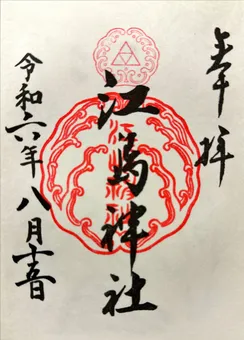 奉拝
江島神社
令和六年八月十五日